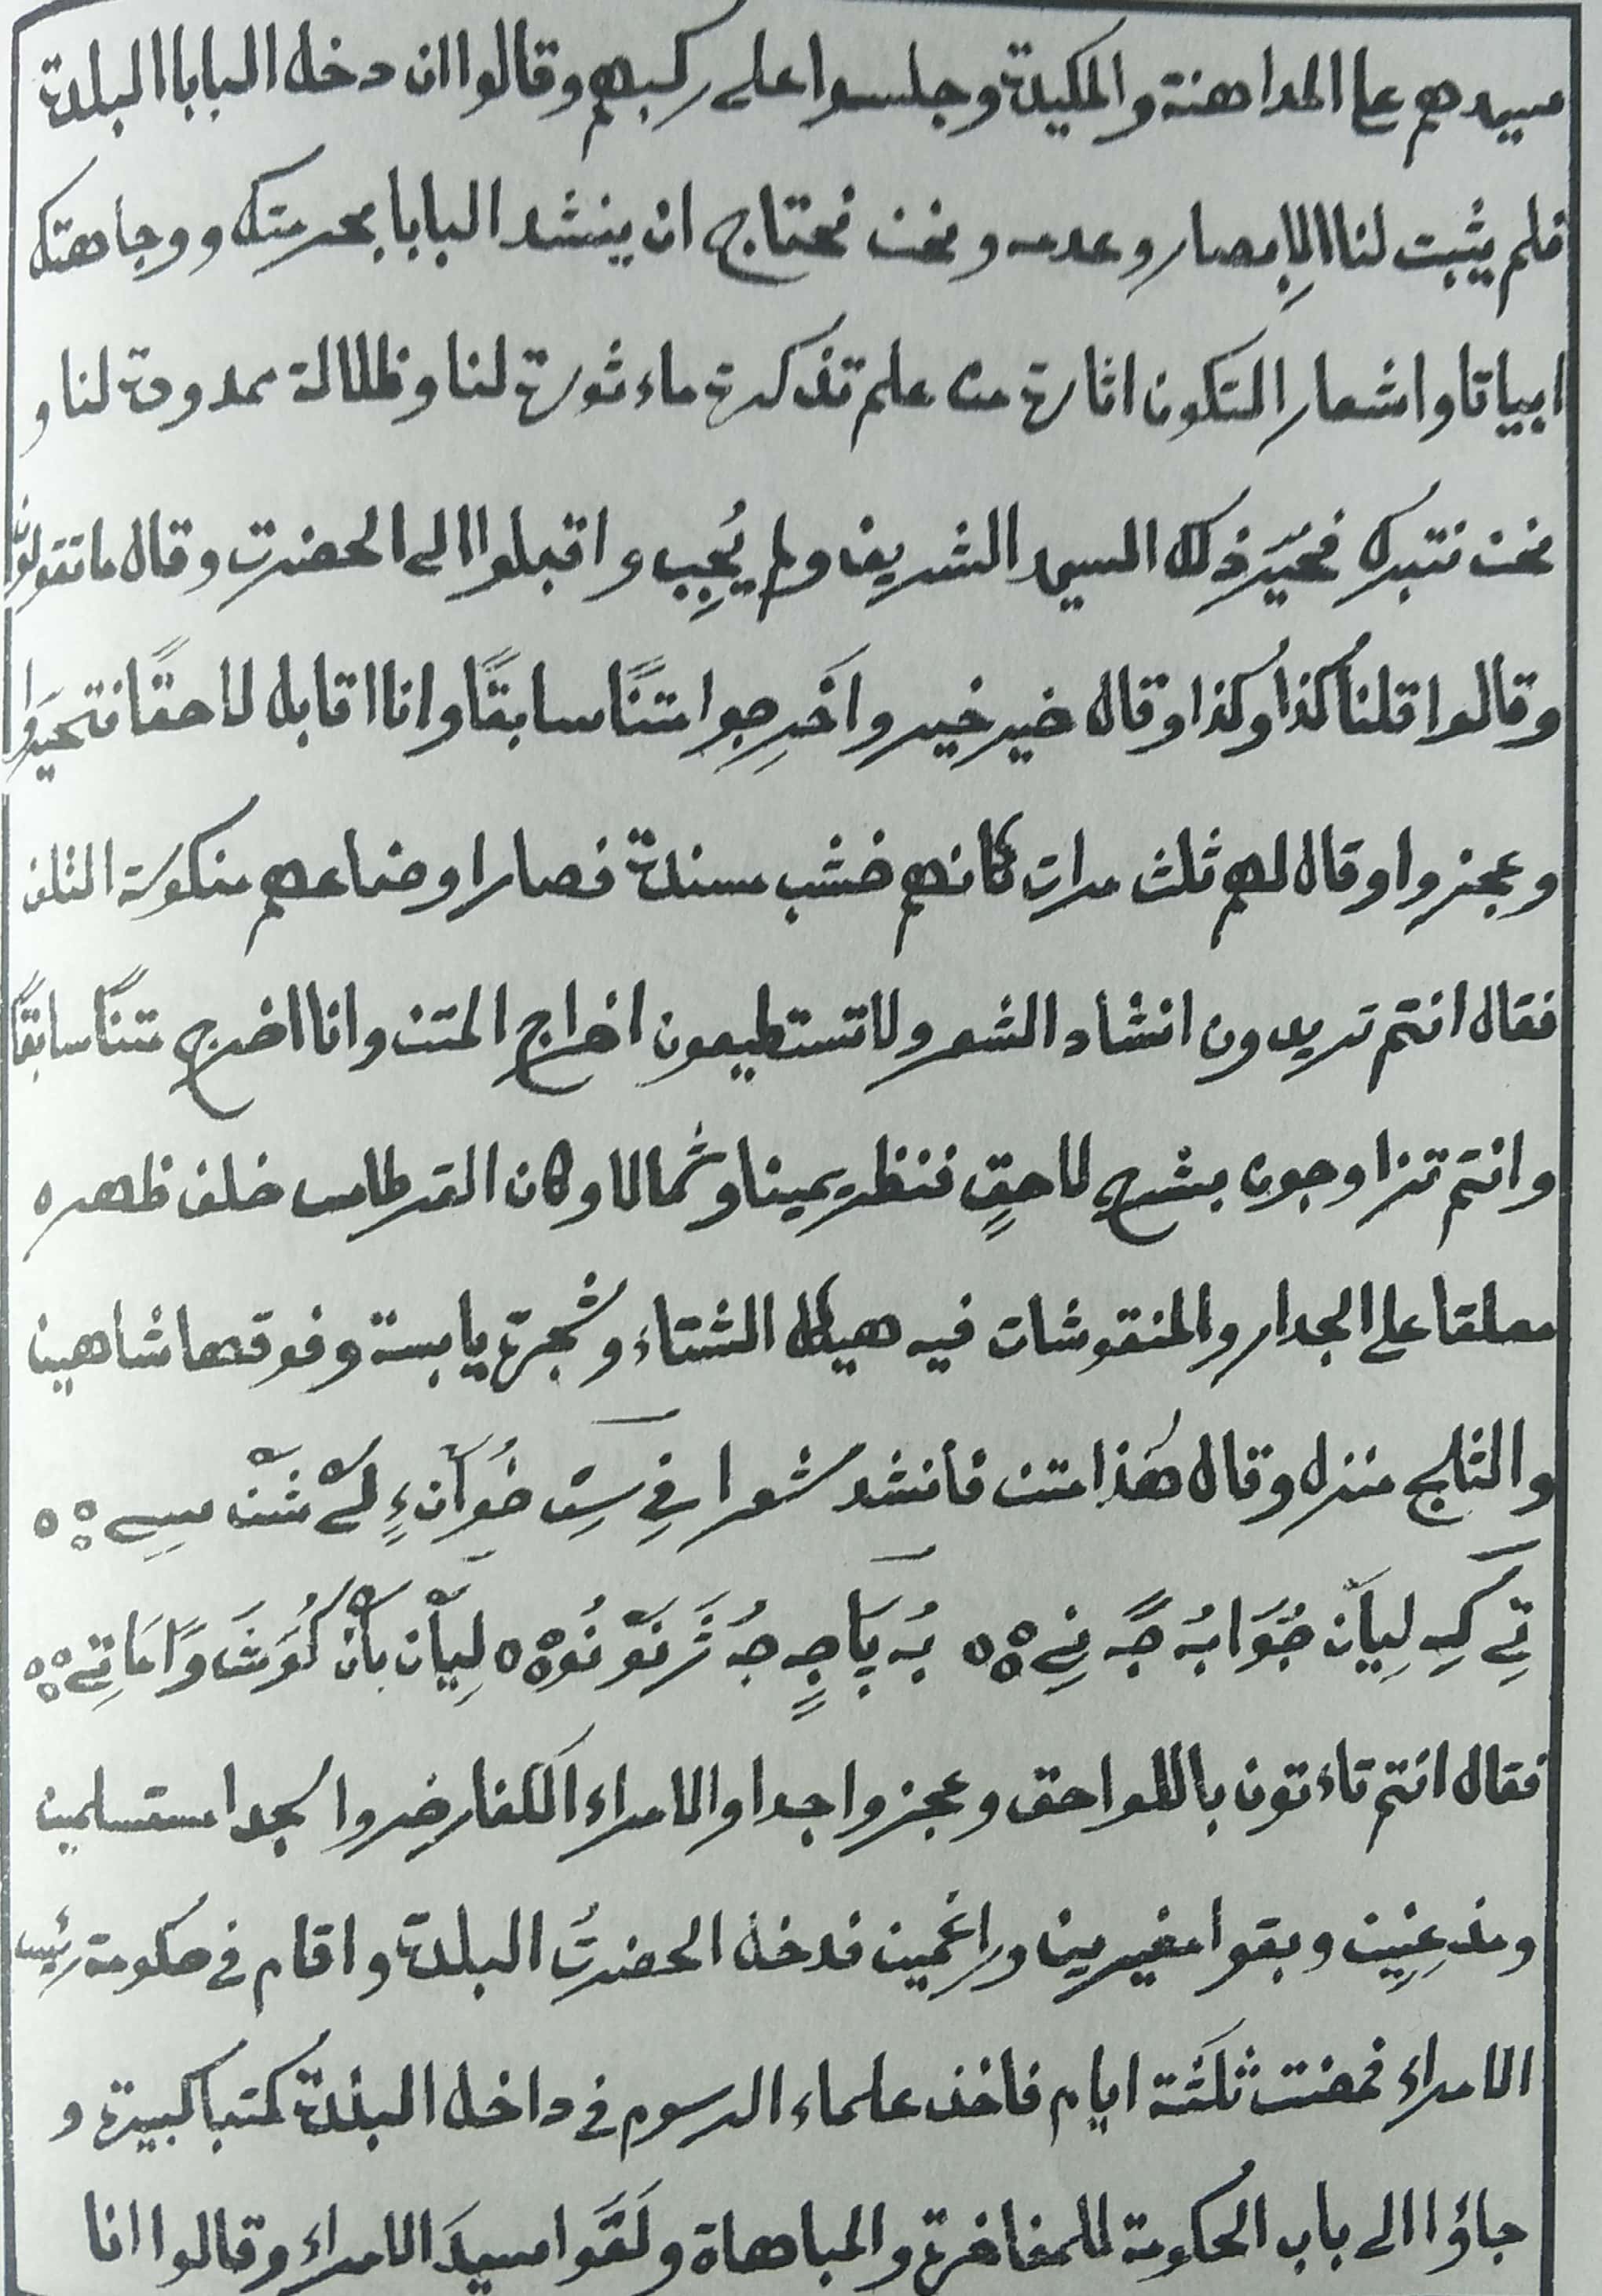 سيدهم على المداهنة والمكيدة وجلسوا على ركبهم وقالوا ان دخل البابا البلدة
فلم يثبت لنا الابصار وعدمه ونحن نحتاج ان ينشد البابا بحرمتك ووجاهتك
ابياتا واشعار التكون اثارة من علم تذكرة ماء ثورة لنا وظلالة ممدودة لنا و
نحن نتبرك فحيّر ذلك السيد الشريف ولم يُجِب واقبلوا الى الحضرت وقال ما تقولون
وقالوا قلنا كذا وكذا وقال خير خير واَخرِجوا متنًا سابقًا وانا اقابل لاحقًا فتحيَّروا
وعجزوا وقال لهم ثلث مرات كانهم خشب مسندة فصار اوضاعهم منكوسة
فقال انتم تريدون انشاد الشعر ولا تستطيعون اخراج المتن وانا اخرج متنًا سابقًا
وانتم تزاوجون بشرح لاحقٍ فنظر يمينا وشمالا وكان القرطاس خلف ظهره
معلقا على الجدار والمنقوشات فيه هيكل الشتاء وشجرة يابسة وفوقها شاهين
والثلج منزل وقال هٰذا متن فأنشد شعرا
فقال انتم تاءتون باللواحق وعجزوا جدا والامراء الكفار خروا سجدا مستسلمين
ومذعِنِين وبقوا مغيرين وراغمين فدخل الحضرتُ البلدة واقام في حكومة رئيس
الامراء فمضت ثلثة ايام فاخذ علماء الرسوم في داخل البلدة كتبا كبيرة و
جاؤا الى باب الحكومة للمفاخرة والمباهاة ولَقَوا سيدَ الامراء وقالوا انا